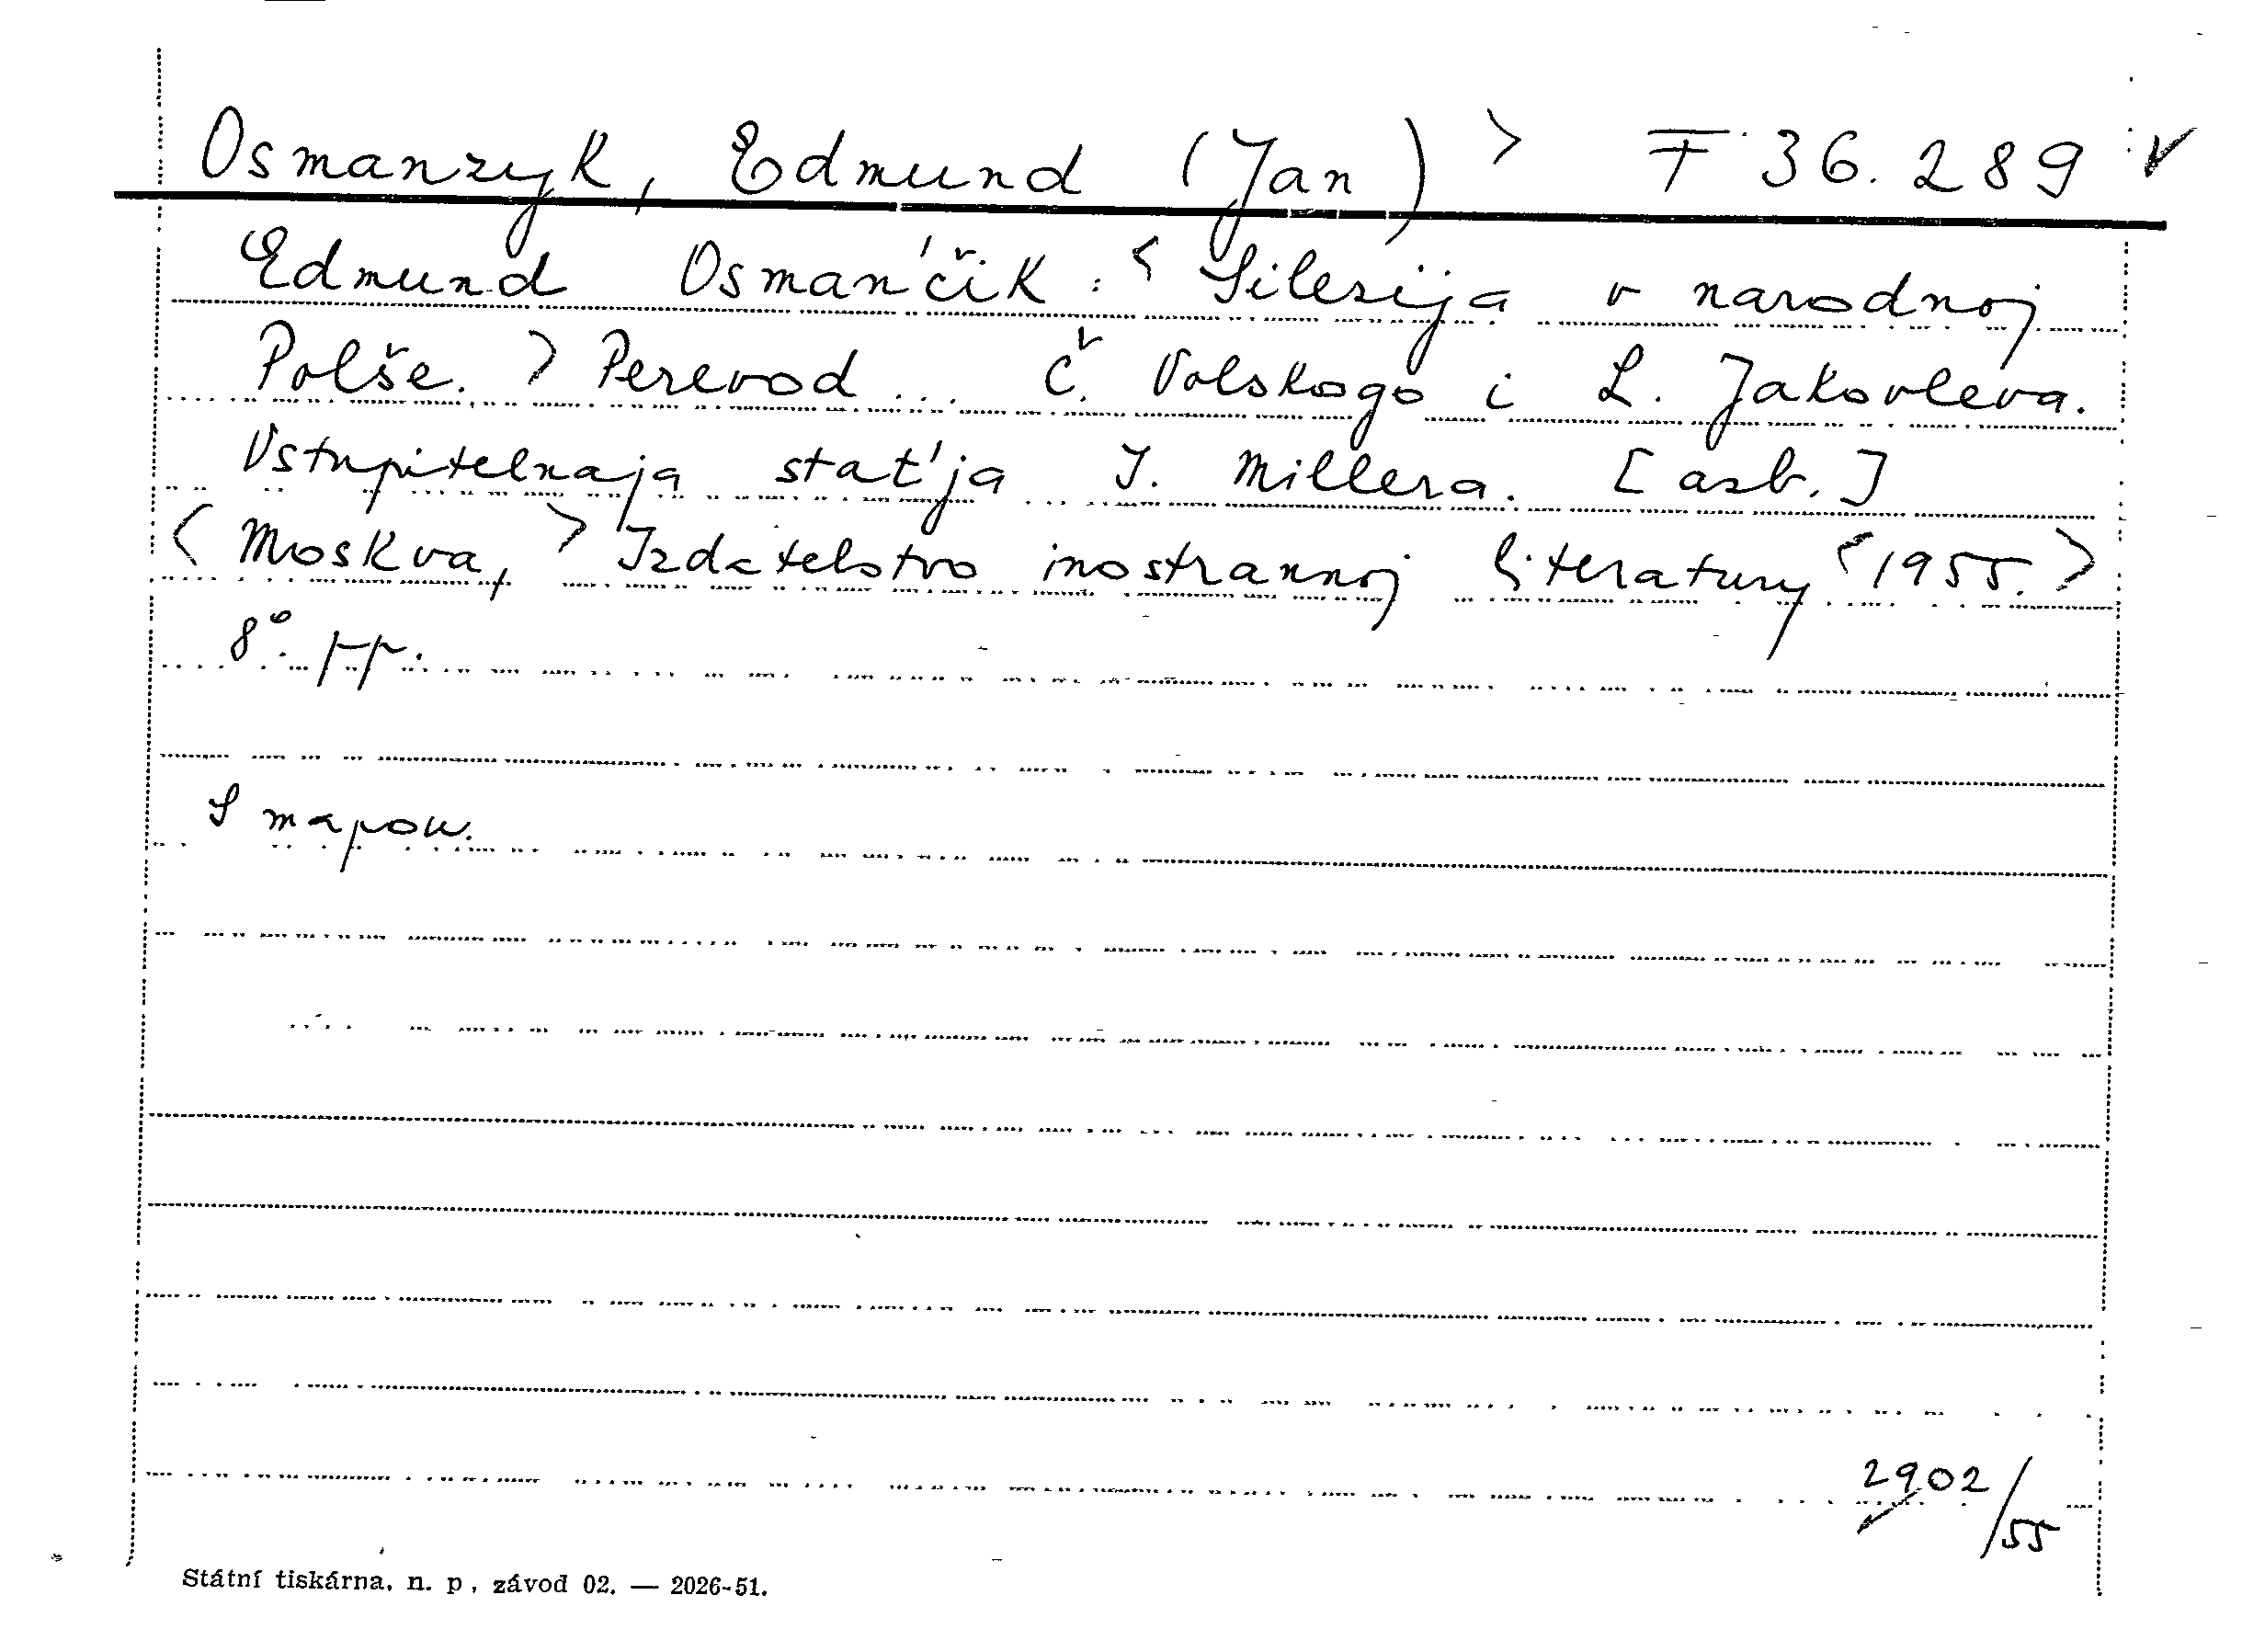 Osmanzyk, Edmund (Jan) > F 36.289 v
Edmund Osman'čik : < Silezija v narodnoj
Polše. > Perevod ... Č. Volskogo i L. Jakovleva.
Vstupitelnaja stat'ja I. Millera. [azb.]
< Moskva, > Izdatelstvo inostrannoj literatury < 1955. >
8° pp.
S mapou.
2902/55
Státní tiskárna, n. p., závod 02. — 2026-51.